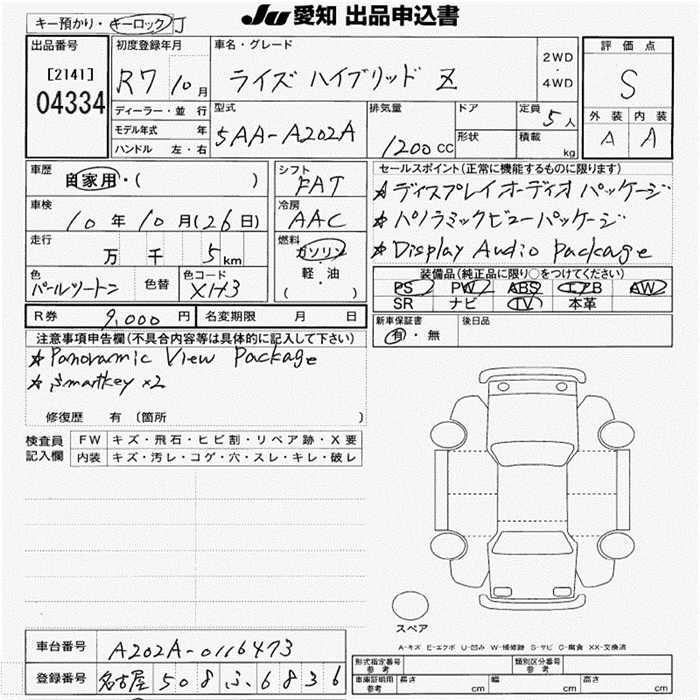 Ju 愛知 出品申込書
キー預かり・キーロック J
出品番号 初度登録年月 車名・グレード 評価点
[2141] 04334 R7 10月 ライズ ハイブリッド Z 2WD・4WD S
ディーラー・並行 型式 排気量 ドア 定員 5人 外装 内装
モデル年式 年 5AA-A202A 1200cc 形状 積載 kg A A
ハンドル 左・右
車歴 自家用・( ) シフト FAT セールスポイント(正常に機能するものに限ります)
★ディスプレイオーディオ パッケージ
車検 10年10月(26日) 冷房 AAC ★パノラミックビューパッケージ
走行 万 千 5km 燃料 ガソリン・軽・油 ( ) ★Display Audio package
色 パールツートン 色替 色コード XH3 装備品(純正品に限り○をつけてください)
PS PW ABS エアB AW
SR ナビ TV 本革
R券 9,000円 名変期限 月 日 新車保証書 有・無 後日品
注意事項申告欄(不具合内容等は具体的に記入して下さい)
★Panoramic View Package
★smartkey x2
修復歴 有 (箇所 )
検査員記入欄 FW キズ・飛石・ヒビ割・リペア跡・X要
内装 キズ・汚レ・コゲ・穴・スレ・キレ・破レ
スペア
A-キズ E-エクボ U-凹み W-補修跡 S-サビ C-腐食 XX-交換済
車台番号 A202A-0116473 形式指定番号 参考 類別区分番号 参考
登録番号 名古屋 508 ふ 6836 車庫証明用 参考 長さ cm 幅 cm 高さ cm